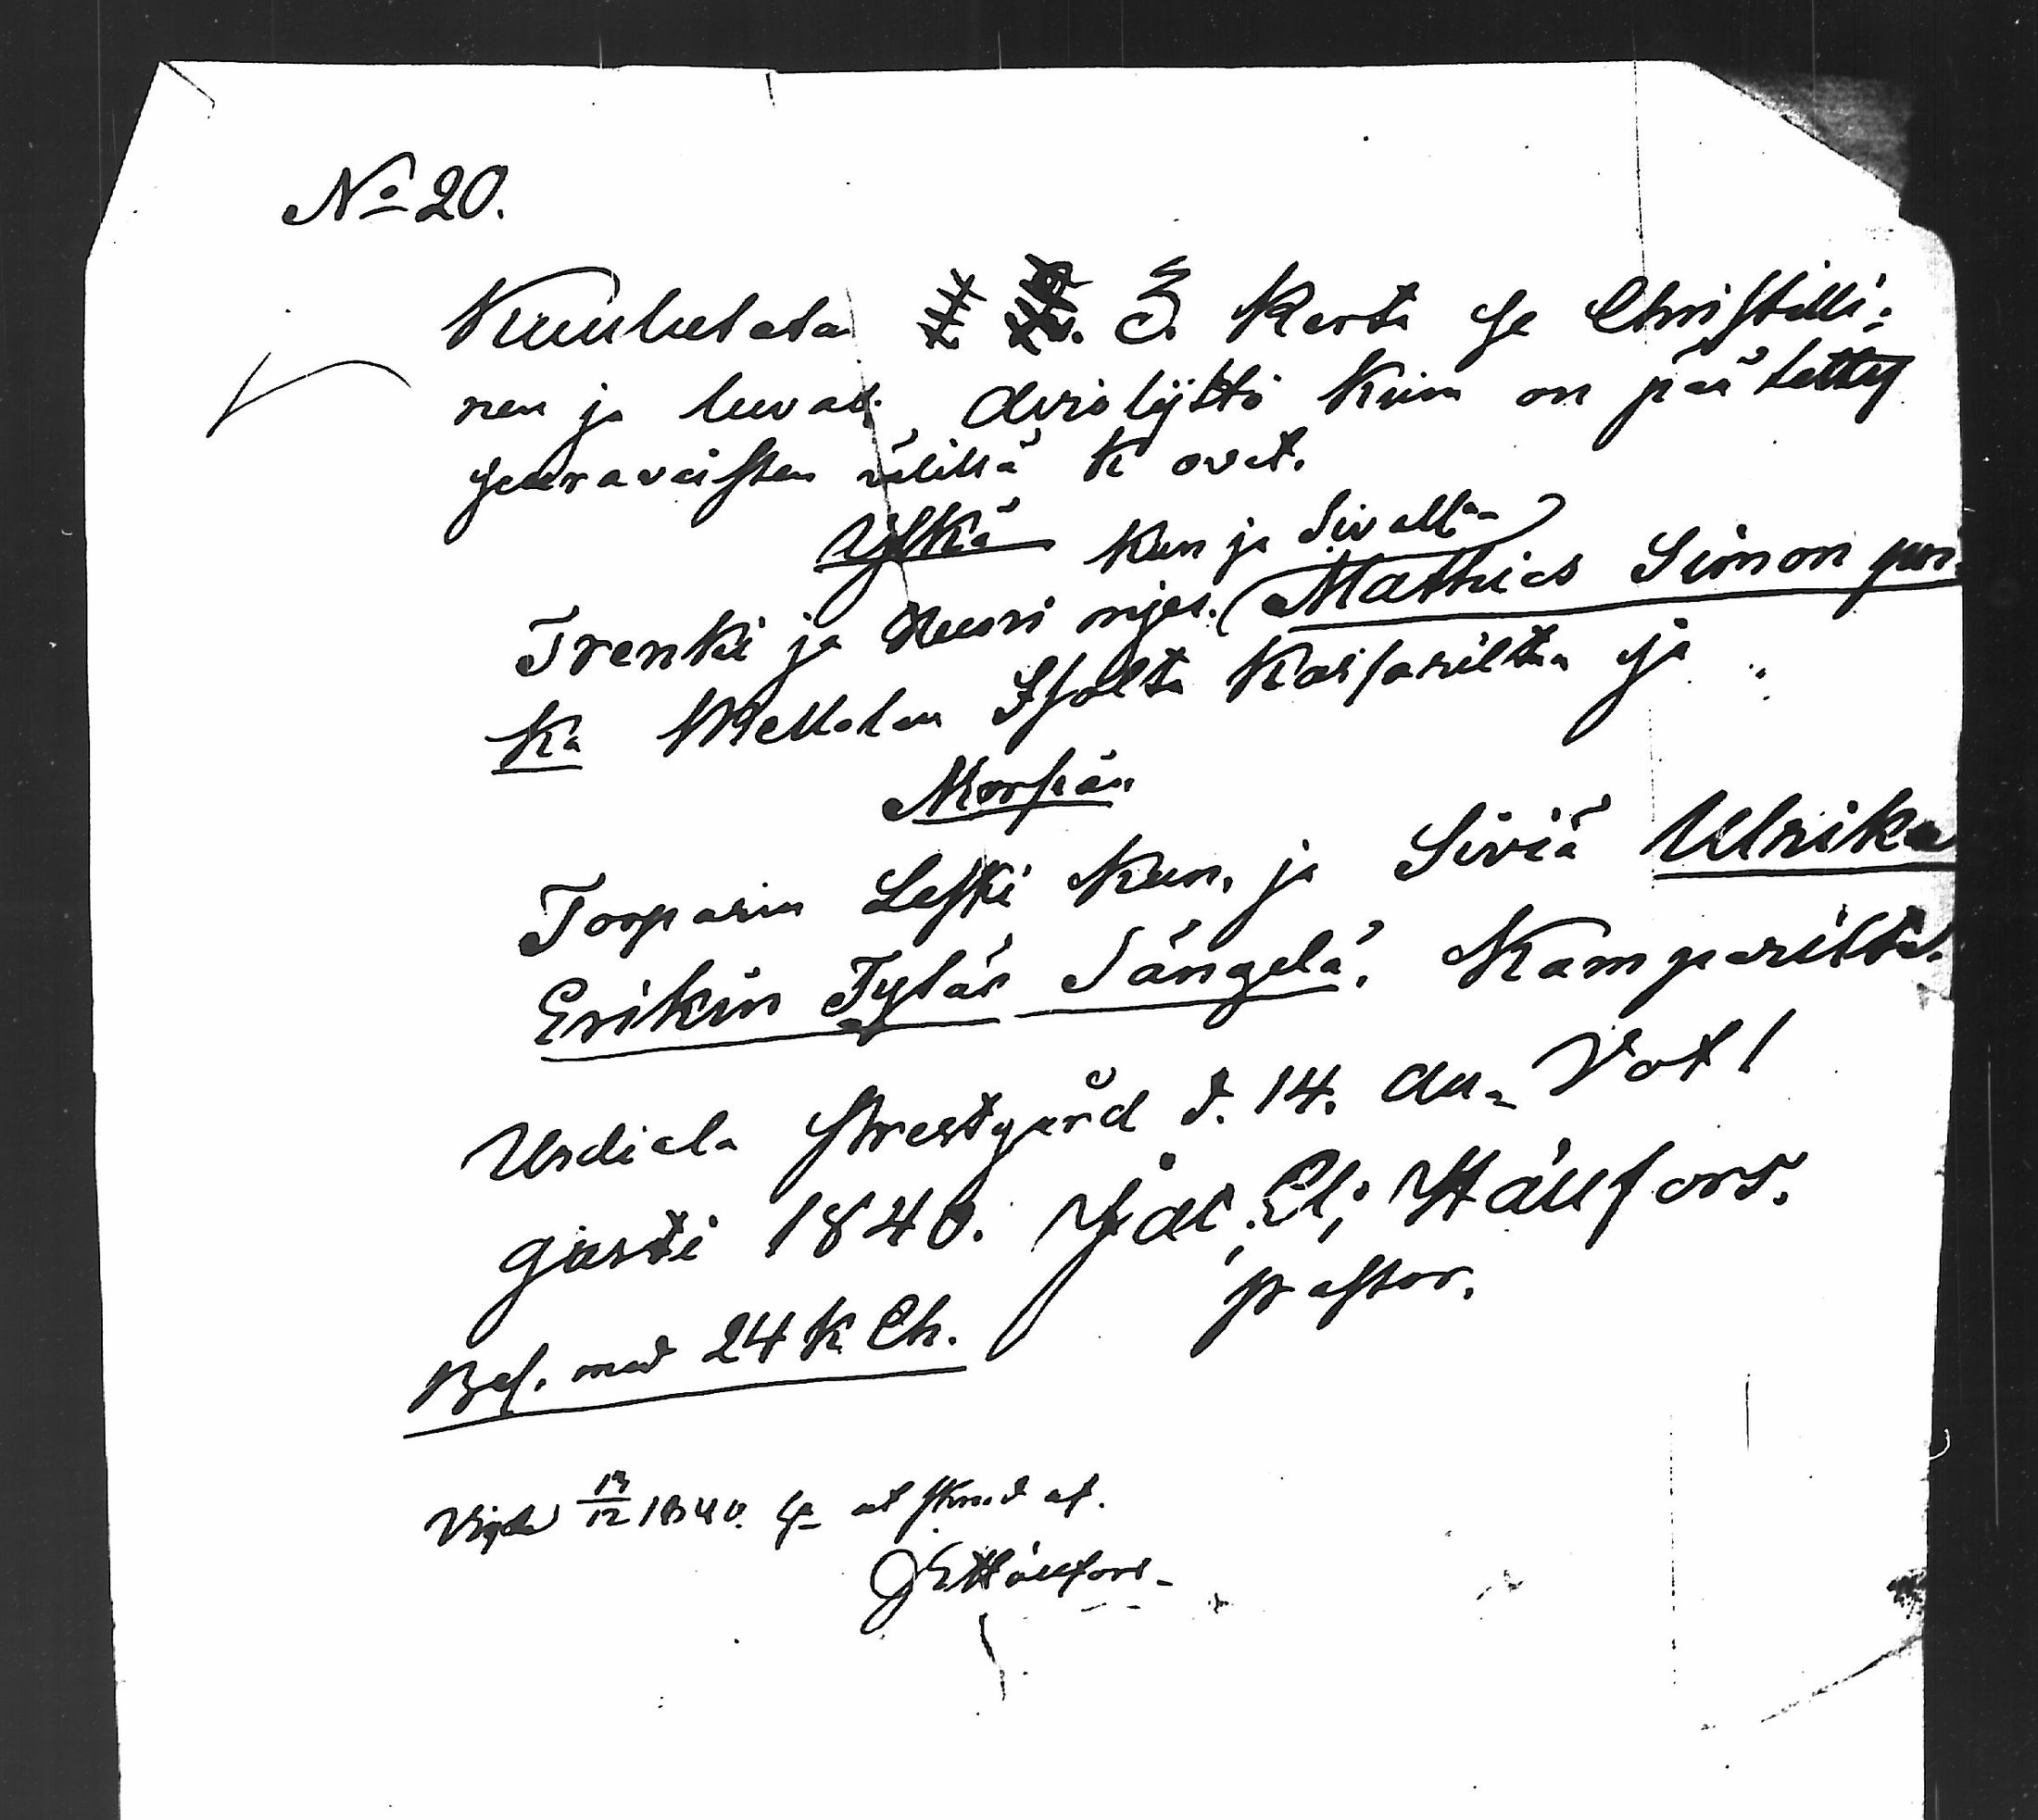 No 20.
Kuulutetan 3. Kerta se Christilli:
nen ja luval. Avioliitto Kuin on päätetty
seuravaisten välillä k ovat.
Ylkä Kun ja Siv
Trenki ja Nuori mjes. Mathias Simon poi
Ka Mellolan Isolta Kaisarilta ja
Morsian
Torparin Leski Kun. ja Siviä Ulrika
Erikin Tytär Sängelä. Kamparilta.
Urdiala Prestgård d. 14. Au=
gusti 1840. Jac. El. Hällfors.
pastor.
Bef. med 24 k Ch.
Vigde 13/12 1840. af
J E Hällfors